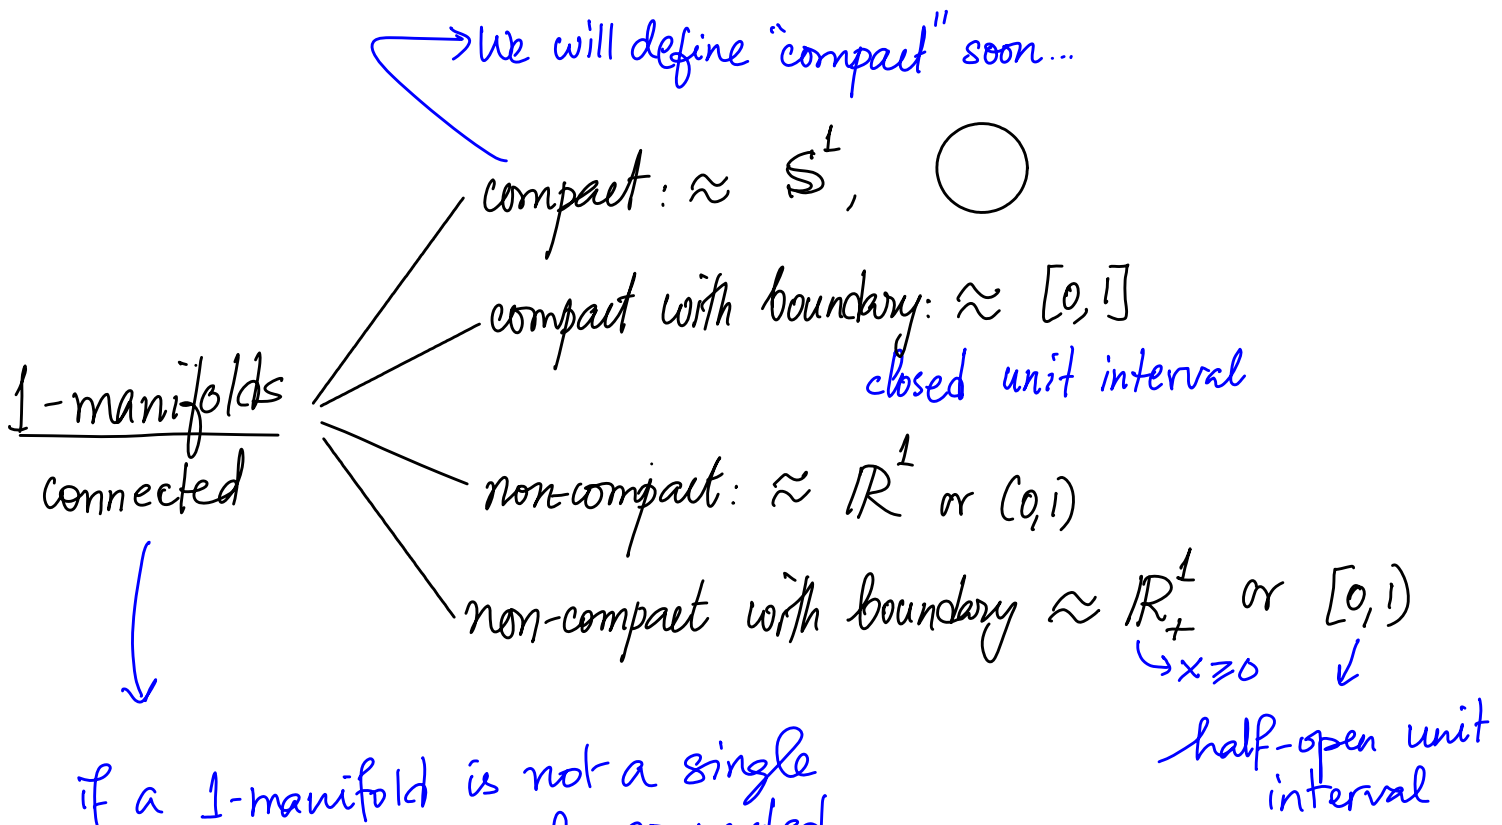 We will define "compact" soon...
compact: ≈ S¹,
compact with boundary: ≈ [0,1]
closed unit interval
1-manifolds
connected
non-compact: ≈ ℝ¹ or (0,1)
non-compact with boundary ≈ ℝ₊¹ or [0,1)
x ≥ 0
half-open unit
interval
if a 1-manifold is not a single